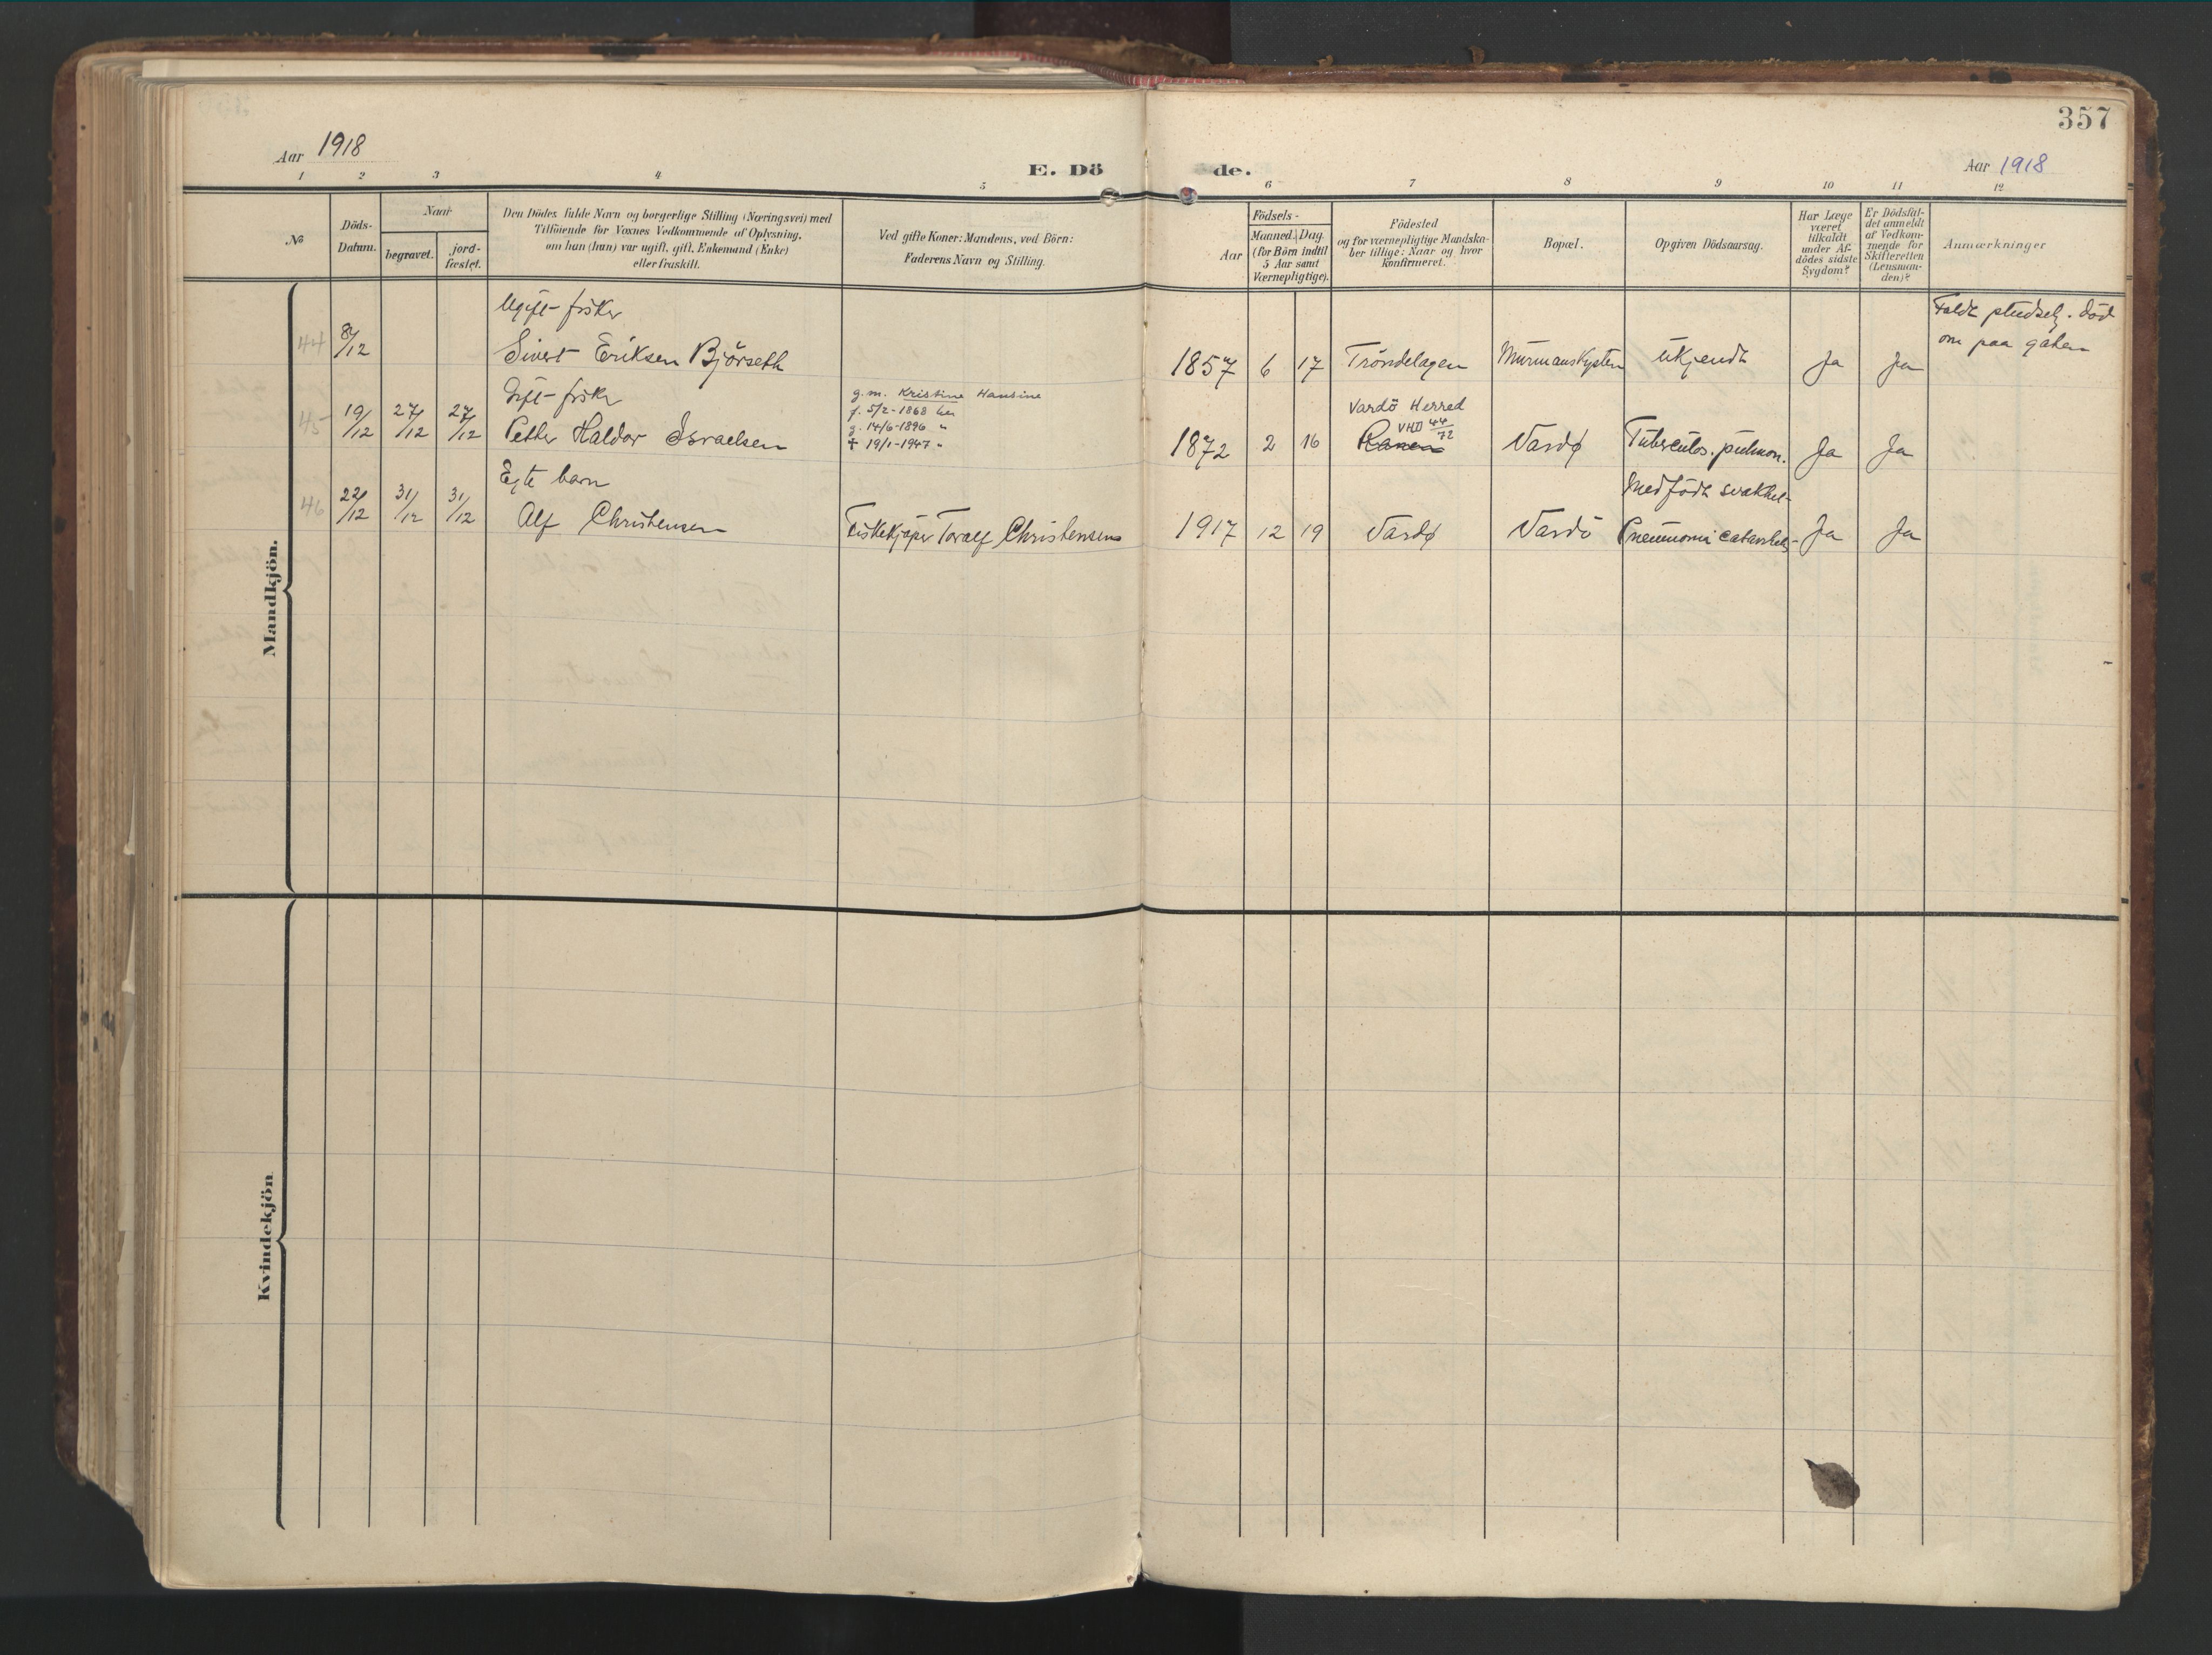 357
Aar 1918
E. Döde.
Aar 1918
1 2 3 4 5 6 7 8 9 10 11 12
No
Döds-
Datum.
Naar
begravet.
jord-
fæstet.
Den Dödes fulde Navn og borgerlige Stilling (Næringsvei) med
Tilföiende for Voxnes Vedkommende af Oplysning,
om han (hun) var ugift, gift, Enkemand (Enke)
eller fraskilt.
Ved gifte Koner: Mandens, ved Börn:
Faderens Navn og Stilling.
Födsels-
Aar
Maaned. Dag.
(for Börn indtil
5 Aar samt
Værnepligtige).
Födested
og for værnepligtige Mandska-
ber tillige: Naar og hvor
konfirmeret.
Bopæl.
Opgiven Dödsaarsag.
Har Læge
været
tilkaldt
under Af-
dödes sidste
Sygdom?
Er Dödsfal-
det anmeldt
af Vedkom-
mende for
Skifteretten
(Lensman-
den)?
Anmærkninger
Mandkjön.
Ugift fisker
44 8/12 Sivert Eriksen Björseth 1857 6 17 Tröndelagen Murmanskysten Ukjendt Ja Ja
Faldt pludselig död
om paa gaten
Gift fisker
45 19/12 27/12 27/12 Petter Haldor Israelsen
g.m. Kristine Hansine
f. 5/2-1868 her
g. 14/6-1896 "
† 19/1-1947 "
Vardö Herred
VHD 44/72
1872 2 16 Ranen Vardø Tuberculos. pulmon. Ja Ja
Egte barn
46 22/12 31/12 31/12 Alf Christensen Fiskekjøper Toralf Christensen 1917 12 19 Vardø Vardö
Medfödt svakhet-
Pneumoni catarrhalis Ja Ja
Kvindekjön